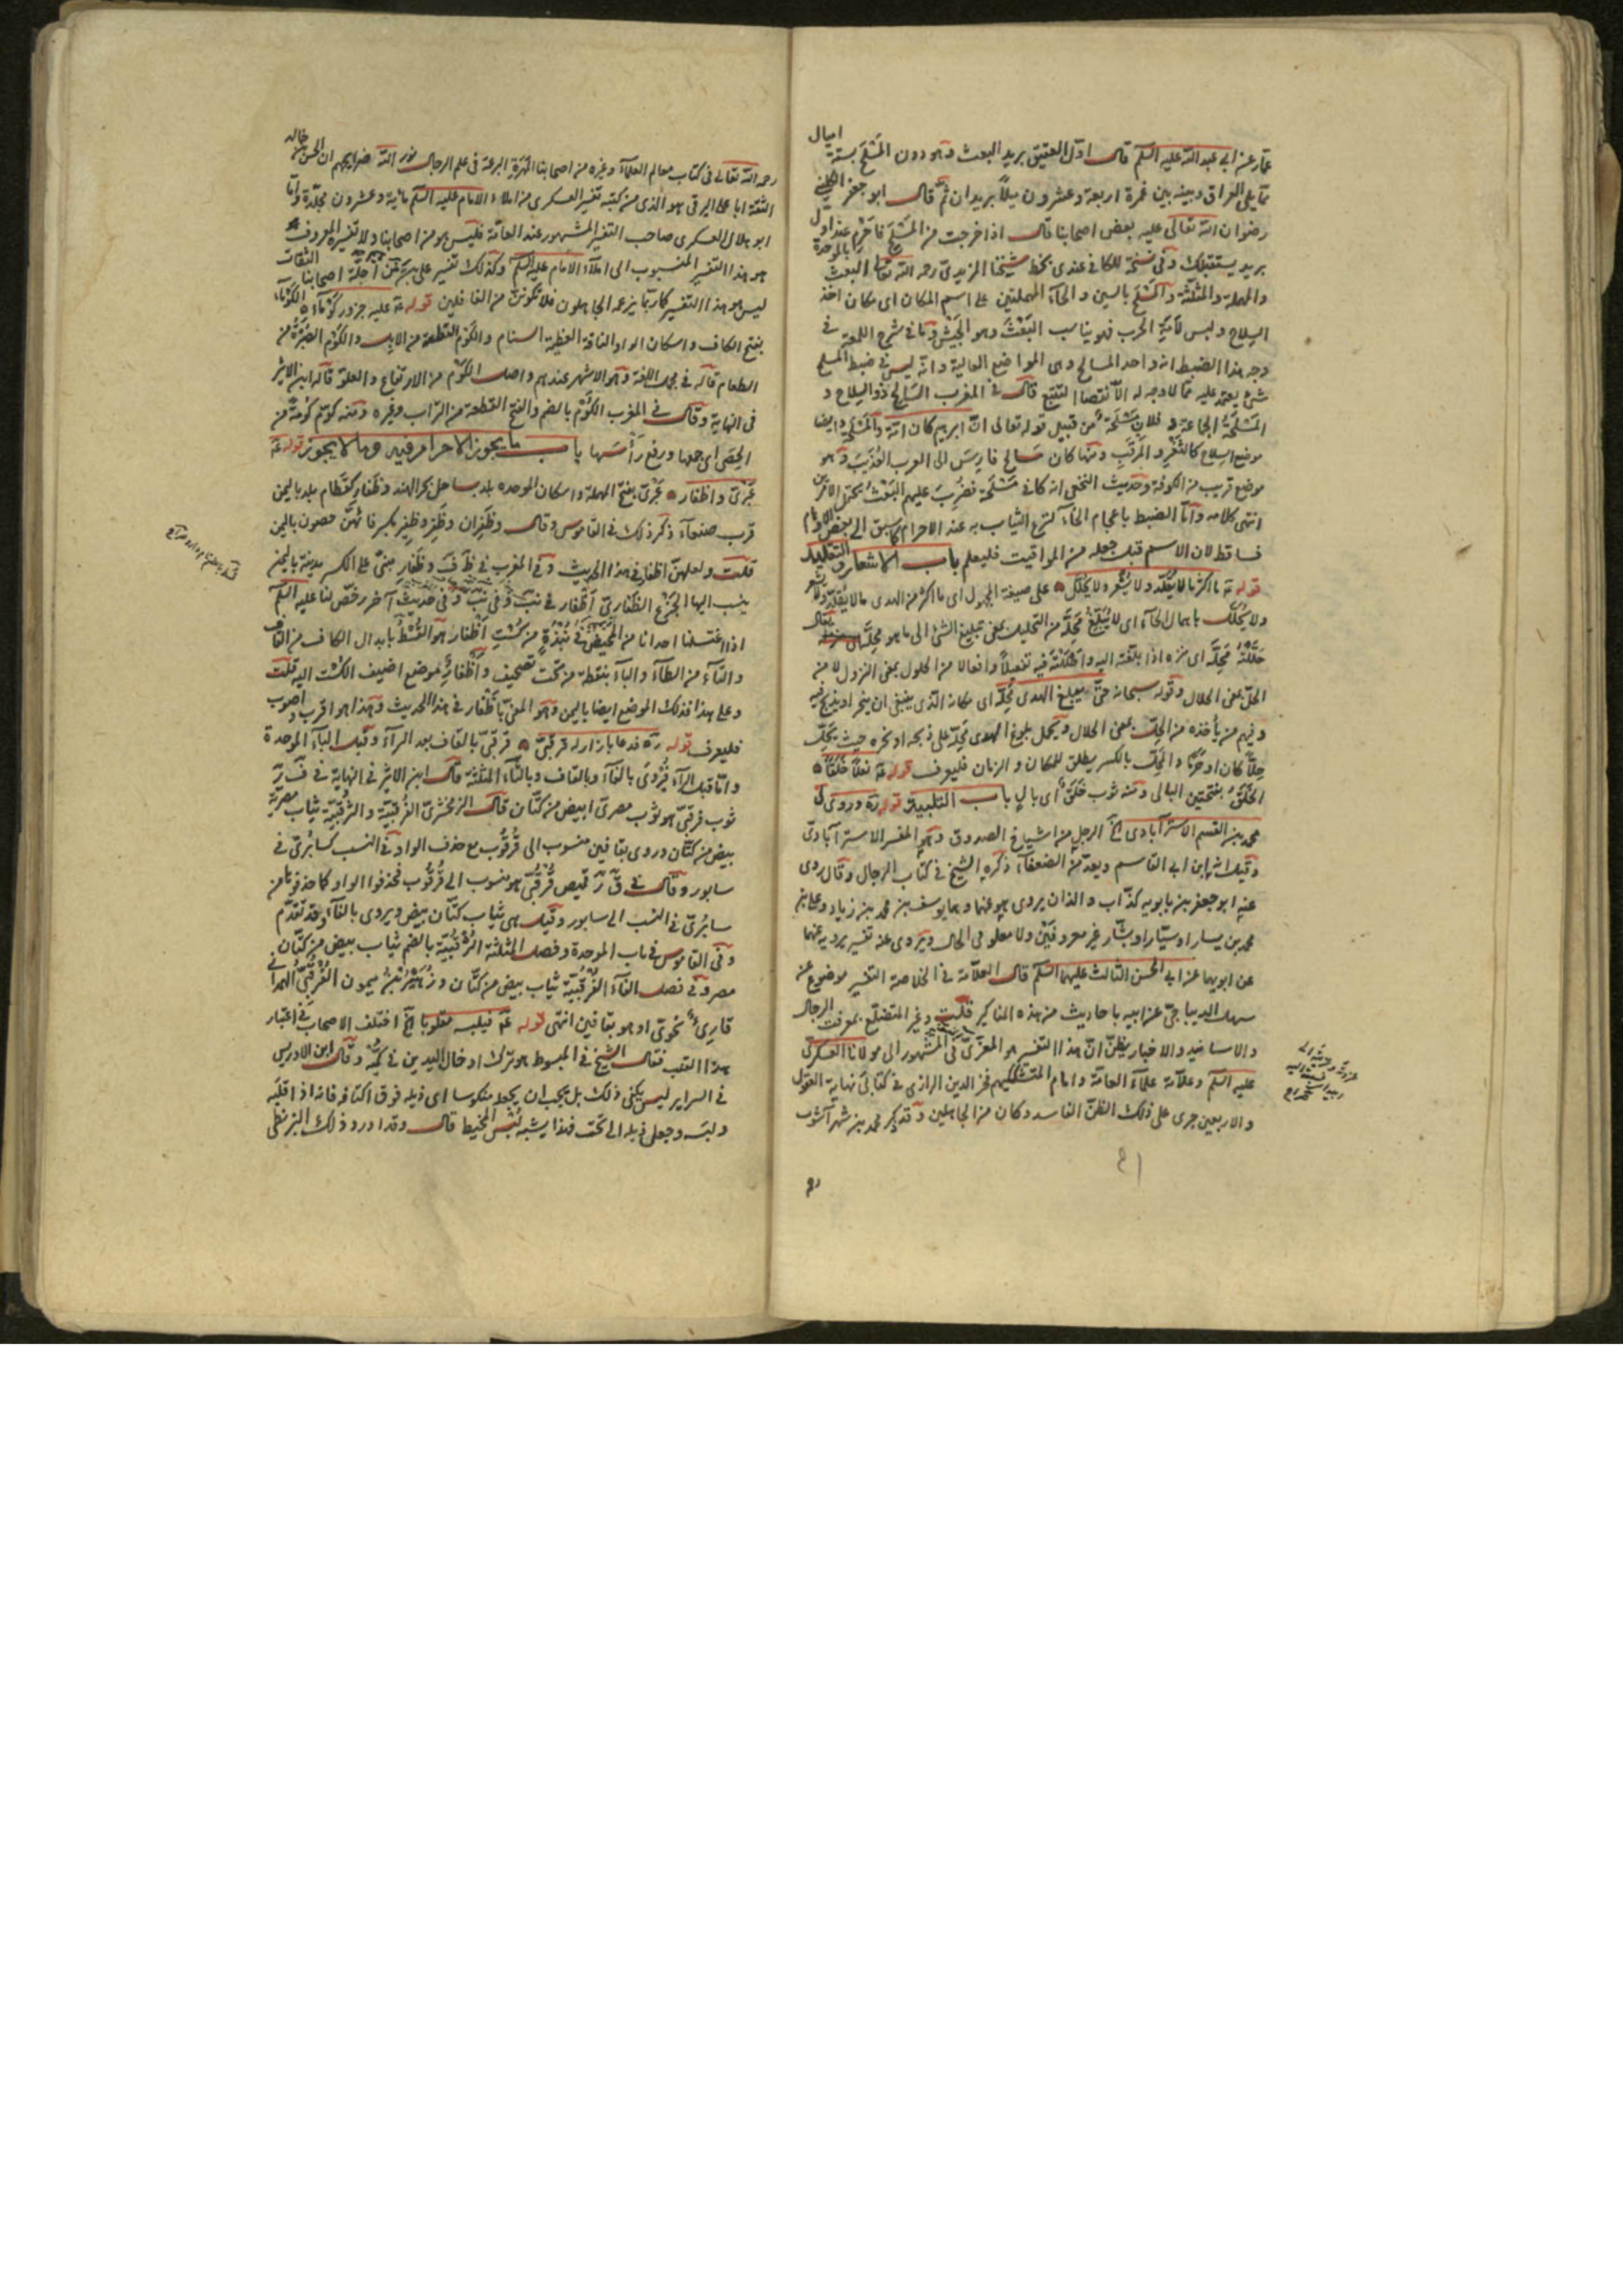 عمار عن ابي عبد الله عليه السلم قال اول العقيق بريد البعث وهو دون المسلح بستة اميال
مما يلي العراق وبينه وبين غمرة اربعة وعشرون ميلا بريدان ثم قال ابو جعفر الكليني
رضوان الله تعالى عليه بعض اصحابنا قال اذا خرجت من المسلخ فاحرم عند اول
بريد يستقبلك وفي نسخة للكافي عندي بخط شيخنا المزيدي رحمه الله تعالى البعث بالموحدة
والمهملة والمثلثة والمسلح بالسين والحاء المهملتين على اسم المكان اي مكان اخذ
السلاح ولبس لأمة الحرب فهو يناسب البعث وهو الجيش وما في شرح اللمعة في
وجه هذا الضبط انه واحد المسالح وهي المواضع العالية وانه ليس في ضبط المسلح
شيء يعتمد عليه مما لا وجه له الا التتبع قال في المغرب السالح ذو السلاح و
المسلحة الجماعة و فلان مسلحة من قبيل قوله تعالى ان ابرهيم كان امة والمسلحة ايضا
موضع السلاح كالثغر والمرقب ومنها كان مسالح فارس الى العرب العذيب وهو
موضع قريب من الكوفة وحديث النخعي انه كان في مسلحة فضرب عليهم البعث
انتهى كلامه واما الضبط باعجام الخاء لنزع الثياب به عند الاحرام كما سبق الى بعض الاوهام
فساقط لان الاسم قبل جعله من المواقيت فليعلم باب الاشعار والتقليد
قوله ما اكثر ما لا يقلد ولا يشعر ولا يجلل على صيغة المجهول اي ما اكثر من الهدى ما لا يقلد ولا يشعر
ولا يحلل باهمال الحاء اي لا يبلغ محله من التحليل بمعنى تبليغ الشيء الى ما هو محله يقال
حللته محله اي منزله اذا بلغته اليه واحللته فيه تفعيلا وافعالا من الحلول بمعنى النزول لا من
الحل بمعنى الحلال وقوله سبحانه حتى يبلغ الهدى محله اي مكانه الذي ينبغي ان ينحر او يذبح فيه
وفيهم من يأخذه من الحل بمعنى الحلال ويحمل بلوغ الهدى محله على ذبحه او نحره حيث يحل
حلا كان او حرما والمحل بالكسر يطلق للمكان والزمان فليعرف قوله نعلا خلقا
الخلق بفتحتين البالي ومنه ثوب خلق اي بال باب التلبية قوله ره وروى لي
محمد بن القسم الاسترآبادي الخ الرجل من اشياخ الصدوق وهو المفسر الاسترآبادي
وقيل انه ابن ابي القاسم ويعد من الضعفاء ذكره الشيخ في كتاب الرجال وقال روى
عنه ابو جعفر بن بابويه كذاب واللذان يروي هو عنهما وهما يوسف بن محمد بن زياد وعلي بن
محمد بن يسار او سيار او بشار غير معروفين ولا معلومي الحال ويروى عنه تفسير يرويه عنهما
عن ابويهما عن ابي الحسن الثالث عليهما السلم قال العلامة في الخلاصة التفسير موضوع عن
سهل الديباجي عن ابيه باحاديث من هذه المناكير قلت وغير المتضلع بمعرفة الرجال
والاسانيد والاخبار يظن ان هذا التفسير هو المعزى في المشهور الى مولانا العسكري
عليه السلم وعلامة علماء العامة وامام المتشككين فخر الدين الرازي في كتابي نهاية العقول
والاربعين جرى على ذلك الظن الفاسد وكان من الجاهلين وقد ذكر محمد بن شهرآشوب
رحمه الله تعالى في كتاب معالم العلماء وغيره من اصحابنا المهرة البرعة في علم الرجال نور الله ضرايحهم ان الحسن بن خالد
الثقة ابا علي البرقي هو الذي من كتبه تفسير العسكري من املاء الامام عليه السلم مائة وعشرون مجلدة واما
ابو هلال العسكري صاحب التفسير المشهور عند العامة فليس هو من اصحابنا ولا تفسيره المعروف
هو هذا التفسير المنسوب الى املاء الامام عليه السلم وكذلك تفسير علي بن من اجلة اصحابنا الثقات
ليس هو هذا التفسير كما ربما يزعمه الجاهلون فلا تكونن من الغافلين قوله عليه جزور كوماء الكوماء
بفتح الكاف واسكان الواو الناقة العظيمة السنام والكوم القطعة من الابل والكوم الصبرة من
الطعام قاله في مجمل اللغة وهو الاشهر عندهم واصل الكوم من الارتفاع والعلو قاله ابن الاثير
في النهاية وقال في المغرب الكوم بالضم والفتح القطعة من التراب وغيره ومنه كوم كومة من
الحصى اي جمعها ورفع رأسها باب ما يجوز الاحرام فيه وما لا يجوز قوله
عبري واظفار عبري بفتح المهملة واسكان الموحدة بلد بساحل بحر الهند وظفار كقطام بلد باليمن
قرب صنعاء ذكر ذلك في القاموس وقال وظفران وظفر وظفر بكسر فائهن حصون باليمن
قلت ولعلهن اظفار في هذا الحديث وفي المغرب في ظ ف وظفار مبني على الكسر مدينة باليمن
ينسب اليها الجزع الظفاري اظفار في نب وفي حديث آخر رخص لنا عليه السلم
اذا اغتسلنا احدانا من المحيض في نبذة من كست اظفار هو القسط بابدال الكاف من القاف
والتاء من الطاء والباء بنقطة من تحت تصحيف واظفار موضع اضيف الكست اليه قلت
وعلى هذا فذلك الموضع ايضا باليمن وهو المعنى باظفار في هذا الحديث وهذا هو اقرب واصوب
فليعرف قوله ره فدعا بازار له قرقبي قرقبي بالقاف بعد الراء وقبل الباء الموحدة
واما قبل الراء فيروى بالفاء وبالقاف وبالثاء المثلثة قال ابن الاثير في النهاية في ف ر
ثوب فرقبي هو ثوب مصري ابيض من كتان قال الزمخشري الفرقبية والثرقبية ثياب مصرية
بيض من كتان وروى بقافين منسوب الى قرقوب مع حذف الواو في النسب كسابري في
سابور وقال في ق ر قميص قرقبي هو منسوب الى قرقوب فحذفوا الواو كما حذفوها من
سابري في النسب الى سابور وقيل هي ثياب كتان بيض ويروى بالفاء وقد تقدم
وفي القاموس في باب الموحدة وفصل المثلثة الثرقبية بالضم ثياب بيض من كتان
مصر وفي فصل الفاء الفرقبية ثياب بيض من كتان وزهير بن ميمون الفرقبي الهمداني
قارىء نحوي او هو بقافين انتهى قوله فيلبسه مقلوبا الخ اختلف الاصحاب في اعتبار
هذا القلب فقال الشيخ في المبسوط هو ترك ادخال اليدين في كمه وقال ابن الادريس
في السراير ليس يكفي ذلك بل يجب ان يجعله منكوسا اي ذيله فوق اكتافه فانه اذا قلبه
ولبسه وجعل ذيله الى تحت فهذا يشبه لبس المخيط قال وقد اورد ذلك البزنطي